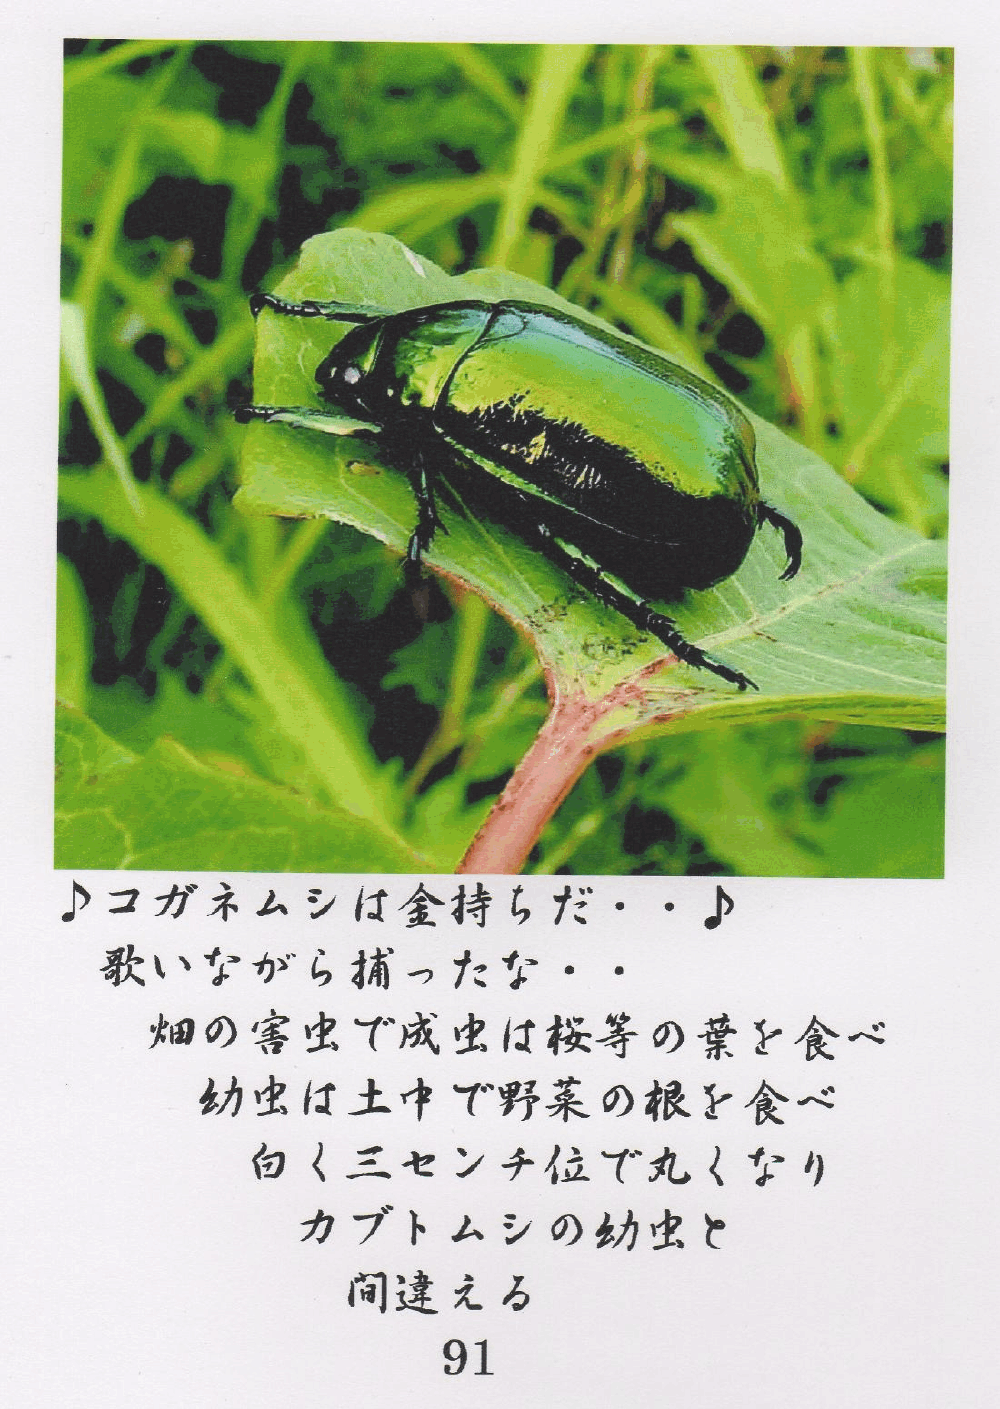 ♪コガネムシは金持ちだ・・♪
歌いながら捕ったな・・
畑の害虫で成虫は桜等の葉を食べ
幼虫は土中で野菜の根を食べ
白く三センチ位で丸くなり
カブトムシの幼虫と
間違える
91